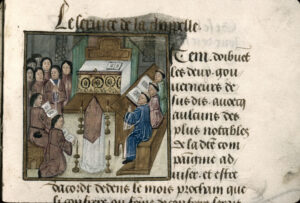 Le seruice de la chappelle
Item doibuet
les deux gou
uerneurs de
sus dis auecq
aulcuns des
plus notables
de la dicte com
paignie ad
uiser et estre
dacort dedens le mois prochain que